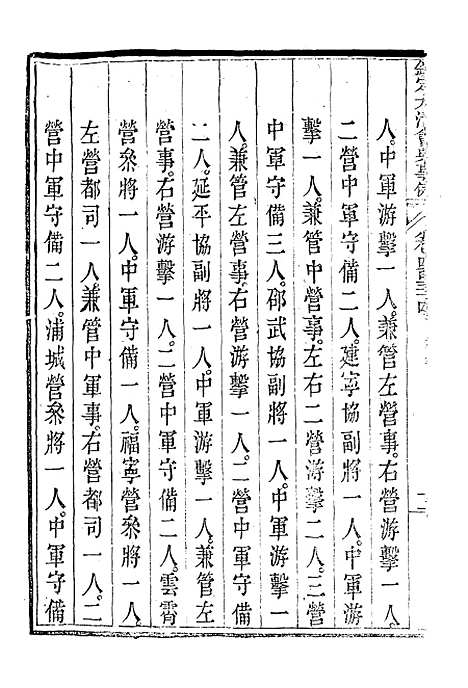 人。中軍游擊一人。兼管左營事。右營游擊一人。
二營中軍守備二人。建寧協副將一人。中軍游
擊一人。兼管中營事。左右二營游擊二人。三營
中軍守備三人。邵武協副將一人。中軍游擊一
人。兼管左營事。右營游擊一人。二營中軍守備
二人。延平協副將一人。中軍游擊一人。兼管左
營事。右營游擊一人。二營中軍守備二人。雲霄
營叅將一人。中軍守備一人。福寧營叅將一人。
左營都司一人。兼管中軍事。右營都司一人。二
營中軍守備二人。浦城營叅將一人。中軍守備